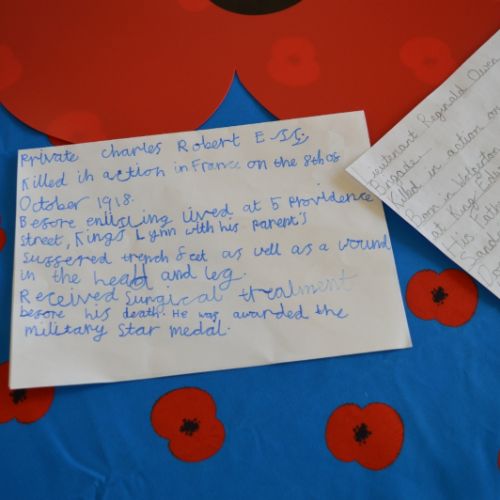 Private Charles Robert
Killed in action in France on the 8th of
October 1918.
Before enlisting lived at 5 Providence
street, Kings Lynn with his parent's
suffered trench feet as well as a wound
in the head and leg.
Received surgical treatment
before his death. He was awarded the
military star medal.
Lieutenant Reginald Owen
Brigade
Killed in action
Born in
at King
His Fath
Sand